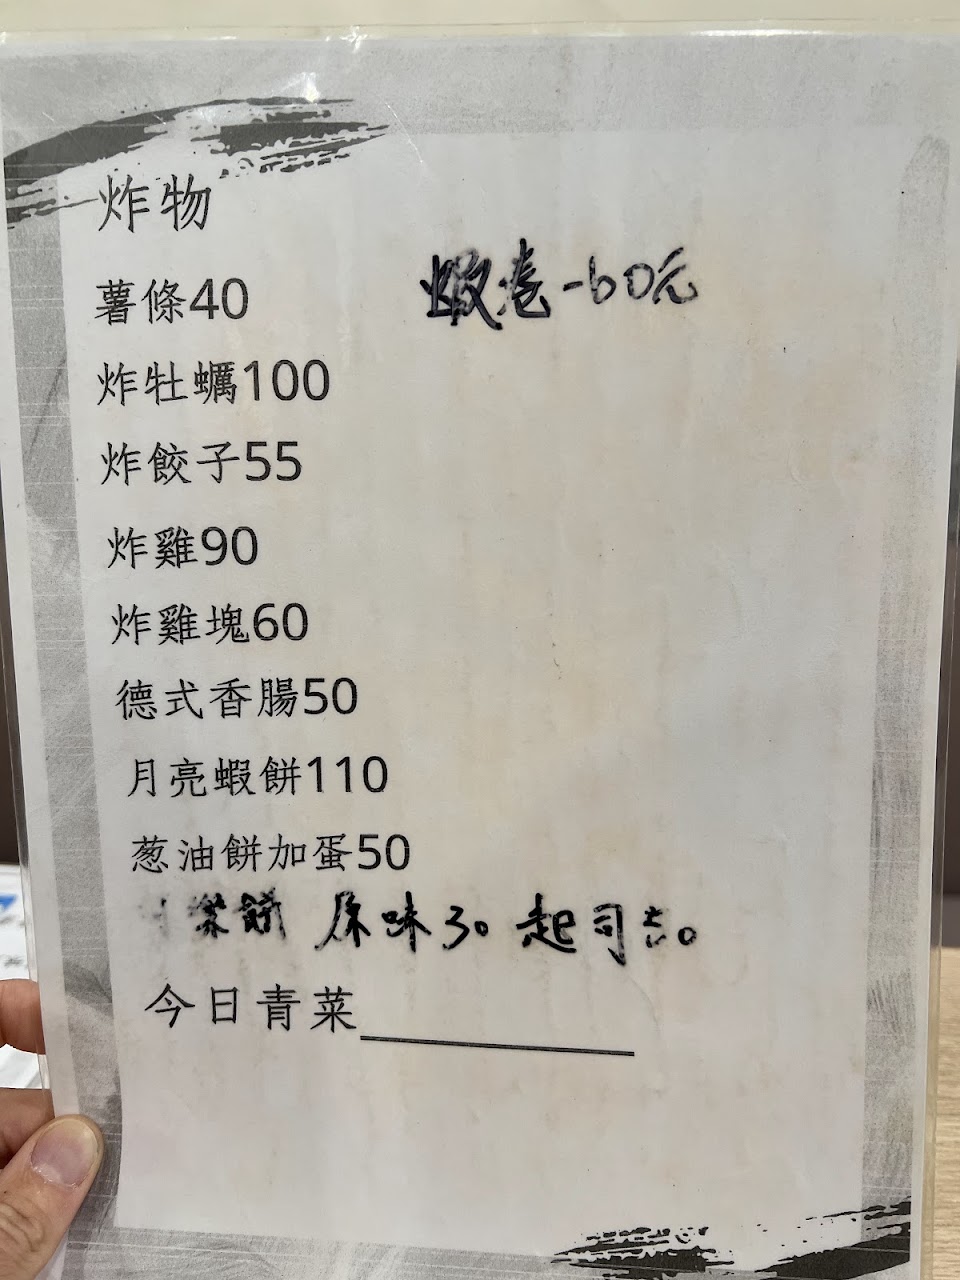 炸物
薯條40
蝦卷-60元
炸牡蠣100
炸餃子55
炸雞90
炸雞塊60
德式香腸50
月亮蝦餅110
葱油餅加蛋50
餅 原味30 起司
今日青菜